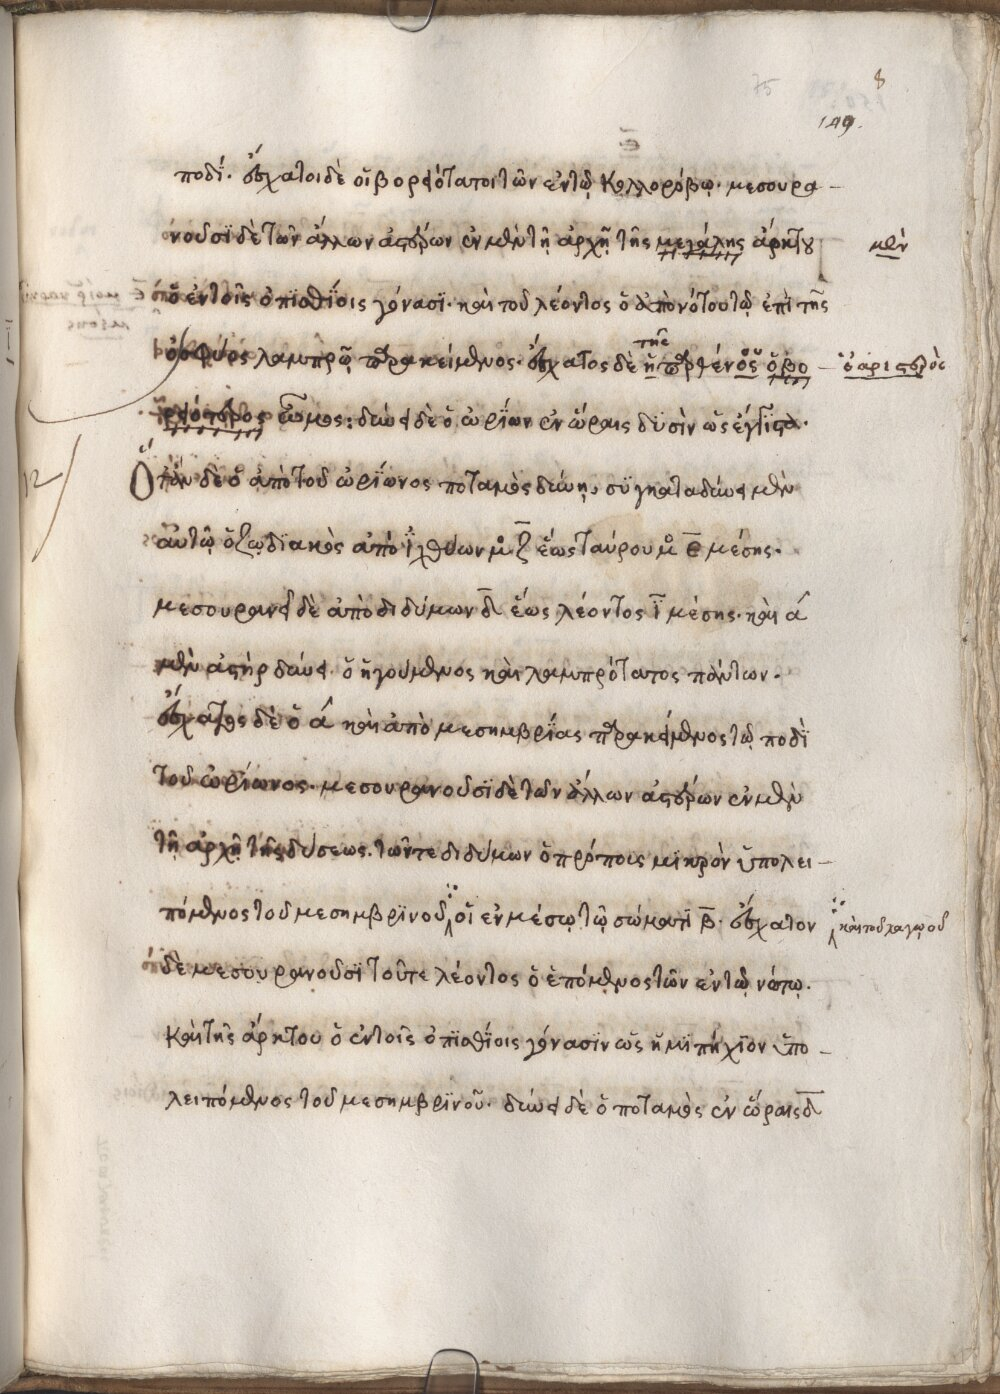 8
75
149.
ποδί. ἔσχατοι δὲ οἵ βορειότατοι τῶν ἐν τῷ Κολλορόβῳ. μεσουρα –
νοῦσϊ δὲ τῶν ἄλλων ἀστέρων ἐν μὲν τῇ ἀρχῇ τῆς μεγάλης ἄρκτου μὲν
ὅ ἐν τοῖς ὀπϊσθίοις γόνασϊ. καὶ τοῦ λέοντος ὅ ἀπὸ νότου τῷ ἐπὶ τῆς
ὀσφύος λαμπρῷ παρακείμενος. ἔσχατος δὲ ἥ τῆς παρθένος ὅ βο – ὅ ἀριστερὸς
ρειότερος ὦμος: δύνει δὲ ὅ ὠρΐων ἐν ὥραις δϋσὶν ὡς ἔγγϊστα.
Ὅταν δὲ ὅ ἀπὸ τοῦ ὠρΐωνος ποταμὸς δύνῃ, συγκαταδύνει μὲν
αὐτῷ ὅ ζῳδϊακὸς ἀπὸ ἰχθύων μο ζ ἕως ταύρου μο ε μέσης.
μεσουρανεῖ δὲ ἀπὸ διδύμων δ ἕως λέοντος ι μέσης. καὶ α
μὲν ἀστὴρ δύνει. ὅ ἡγούμενος καὶ λαμπρότατος πάντων.
ἔσχατος δὲ ὅ α καὶ ἀπὸ μεσημβρίας παρακείμενος τῷ ποδὶ
τοῦ ὠρίωνος. μεσουρανοῦσϊ δὲ τῶν ἄλλων ἀστέρων ἐν μὲν
τῇ ἀρχῇ τῆς δύσεως. τῶν τε διδύμων ὅ πρόπους μϊκρὸν ὑπολει –
πόμενος τοῦ μεσημβρϊνοῦ οἵ ἐν μέσῳ τῷ σώματϊ β. ἔσχατον καὶ τοῦ λαγῳοῦ
δὲ μεσουρανοῦσϊ τοῦ τε λέοντος ὅ ἑπόμενος τῶν ἐν τῷ νώτῳ.
Καὶ τῆς ἄρκτου ὅ ἐν τοῖς ὀπϊσθίοις γόνασϊν ὡς ἡμϊπήχϊον ὑπο –
λειπόμενος τοῦ μεσημβρϊνοῦ. δύνει δὲ ὅ ποταμὸς ἐν ὥραις δ